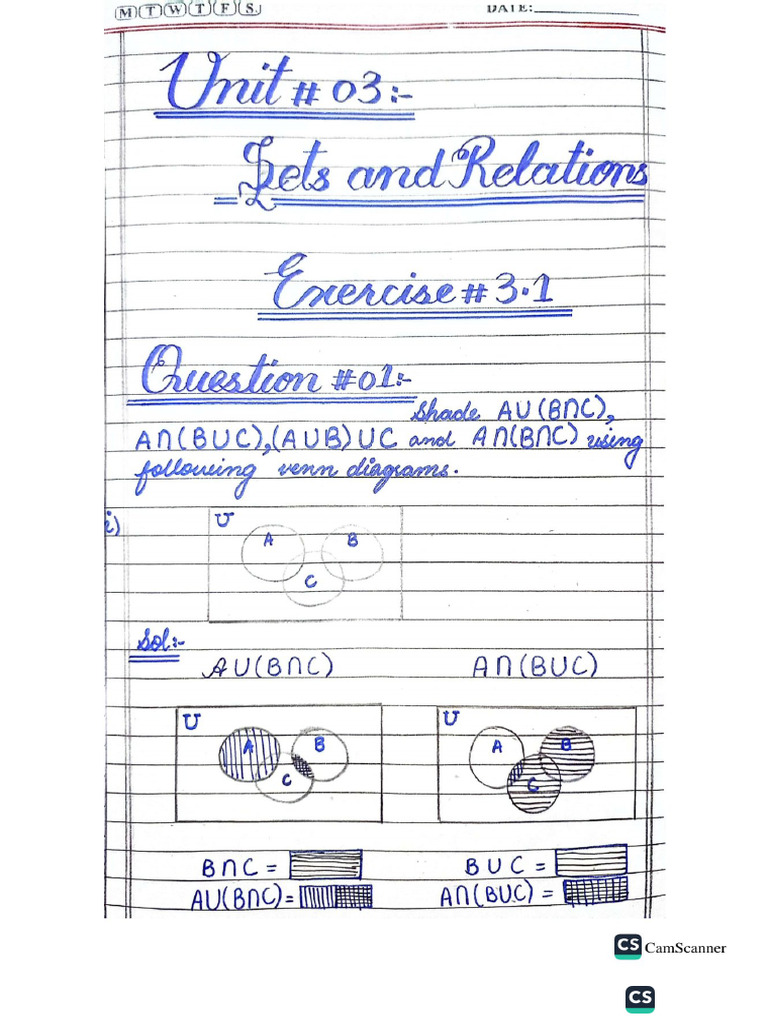 M T W T F S
DATE:
Unit # 03:-
Sets and Relations
Exercise # 3.1
Question #01:-
Shade A∪(B∩C),
A∩(B∪C),(A∪B)∪C and A∩(B∩C) using
following venn diagrams.
i)
U
A B
C
Sol:-
A∪(B∩C) A∩(B∪C)
U U
A B A B
C C
B∩C = B∪C =
A∪(B∩C)= A∩(B∪C) =
CS CamScanner
CS